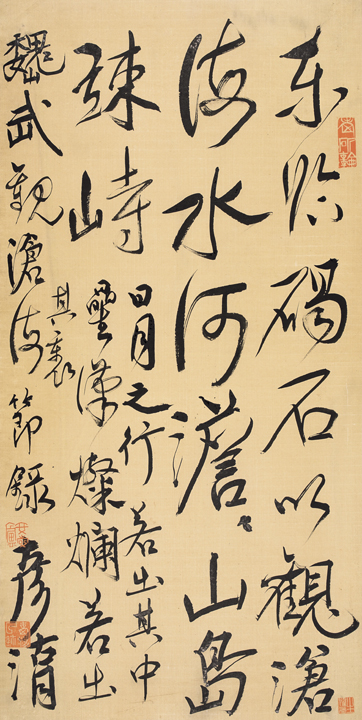 東臨碣石以觀滄
海水何澹々山島
竦峙
日月之行若出其中
曐漢燦爛若出
其裏
魏武觀滄海節錄 彥